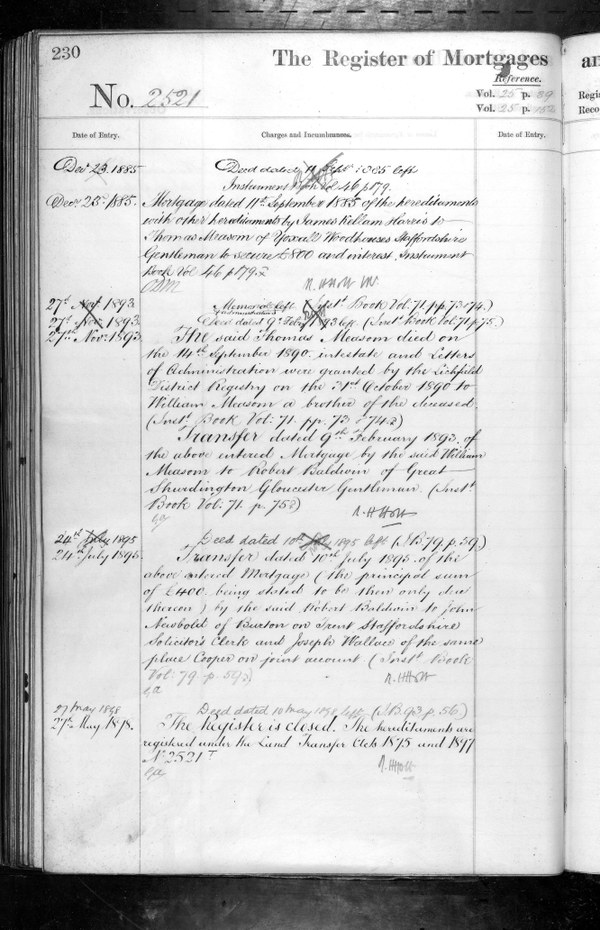 230
The Register of Mortgages
an
Reference.
No. 2521
Vol. 25 p. 39
Regis
Vol. 25 p. 152
Reco
Date of Entry.
Charges and Incumbrances.
Date of Entry.
Decr 23. 1885
Deed dated 11 Septr 1885 left
Instrument Book Vol 46 p 179.
Decr 23rd 1885.
Mortgage dated 11th September 1885 of the hereditaments
with other hereditaments by James Kellam Harris to
Thomas Measom of Yoxall Woodhouses Staffordshire
Gentleman to secure £800 and interest. Instrument
Book Vol 46 p 179.
27th Novr 1893
Memorial left Inst. Book Vol. 71. pp. 73 & 74.)
27th Nov. 1893.
Deed dated 9th Feby 1893 left. (Inst. Book Vol. 71 p. 75.)
27th Nov. 1893
The said Thomas Measom died on
the 14th September 1890. intestate and Letters
of Administration were granted by the Lichfield
District Registry on the 31st October 1890 to
William Measom a brother of the deceased.
(Inst. Book Vol: 71. pp. 73 & 74.)
Transfer dated 9th February 1893. of
the above entered Mortgage by the said William
Measom to Robert Baldwin of Great
Shurdington Gloucester Gentleman. (Inst.
Book Vol: 71. p. 75)
24th July 1895
Deed dated 10th July 1895 left (I.B. 79. p. 59.)
24th July 1895.
Transfer dated 10th July 1895. of the
above entered Mortgage (the principal sum
of £400. being stated to be then only due
thereon) by the said Robert Baldwin to John
Newbold of Burton on Trent Staffordshire
Solicitor's Clerk and Joseph Wallace of the same
place Cooper on joint account (Inst. Book
Vol: 79. p. 59.)
27 May 1898
Deed dated 10 May 1898 left. (I.B. 93 p. 56)
27th May. 1898.
The Register is closed. The hereditaments are
registered under the Land Transfer Acts 1875 and 1897
No 2521